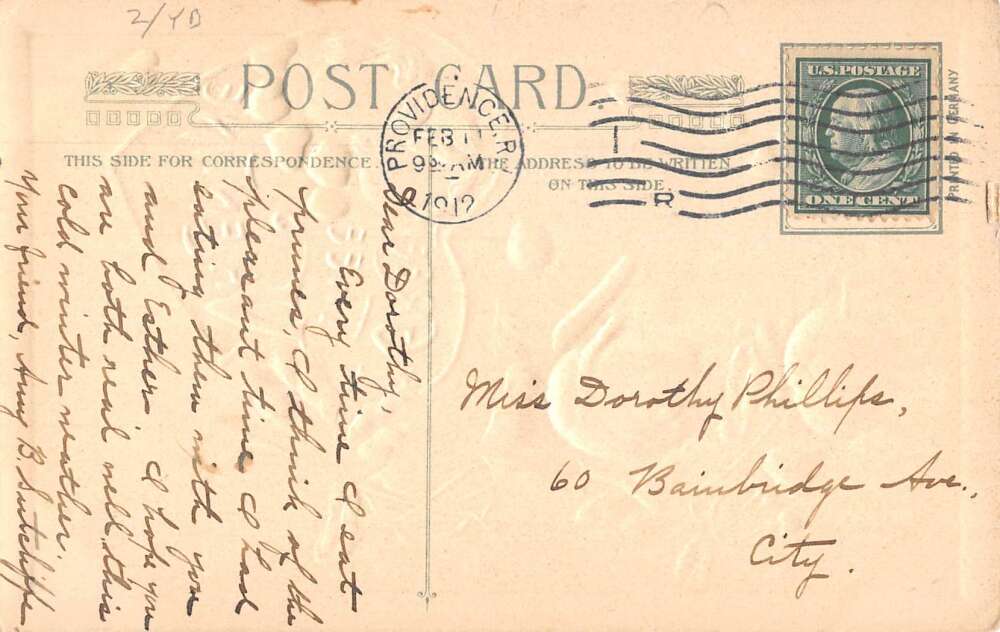 2/YD
POST CARD
THIS SIDE FOR CORRESPONDENCE.
THE ADDRESS TO BE WRITTEN
ON THIS SIDE.
PROVIDENCE, R.
FEB 11
9 AM
1912
R
U.S. POSTAGE
ONE CENT
PRINTED IN GERMANY
Dear Dorothy,
Every time I eat
prunes, I think of the
pleasant time I had
eating them with you
and Esther. I hope you
are both real well, this
cold winter weather.
Your friend, Amy B. Sutcliffe
Miss Dorothy Phillips,
60 Bainbridge Ave.,
City.